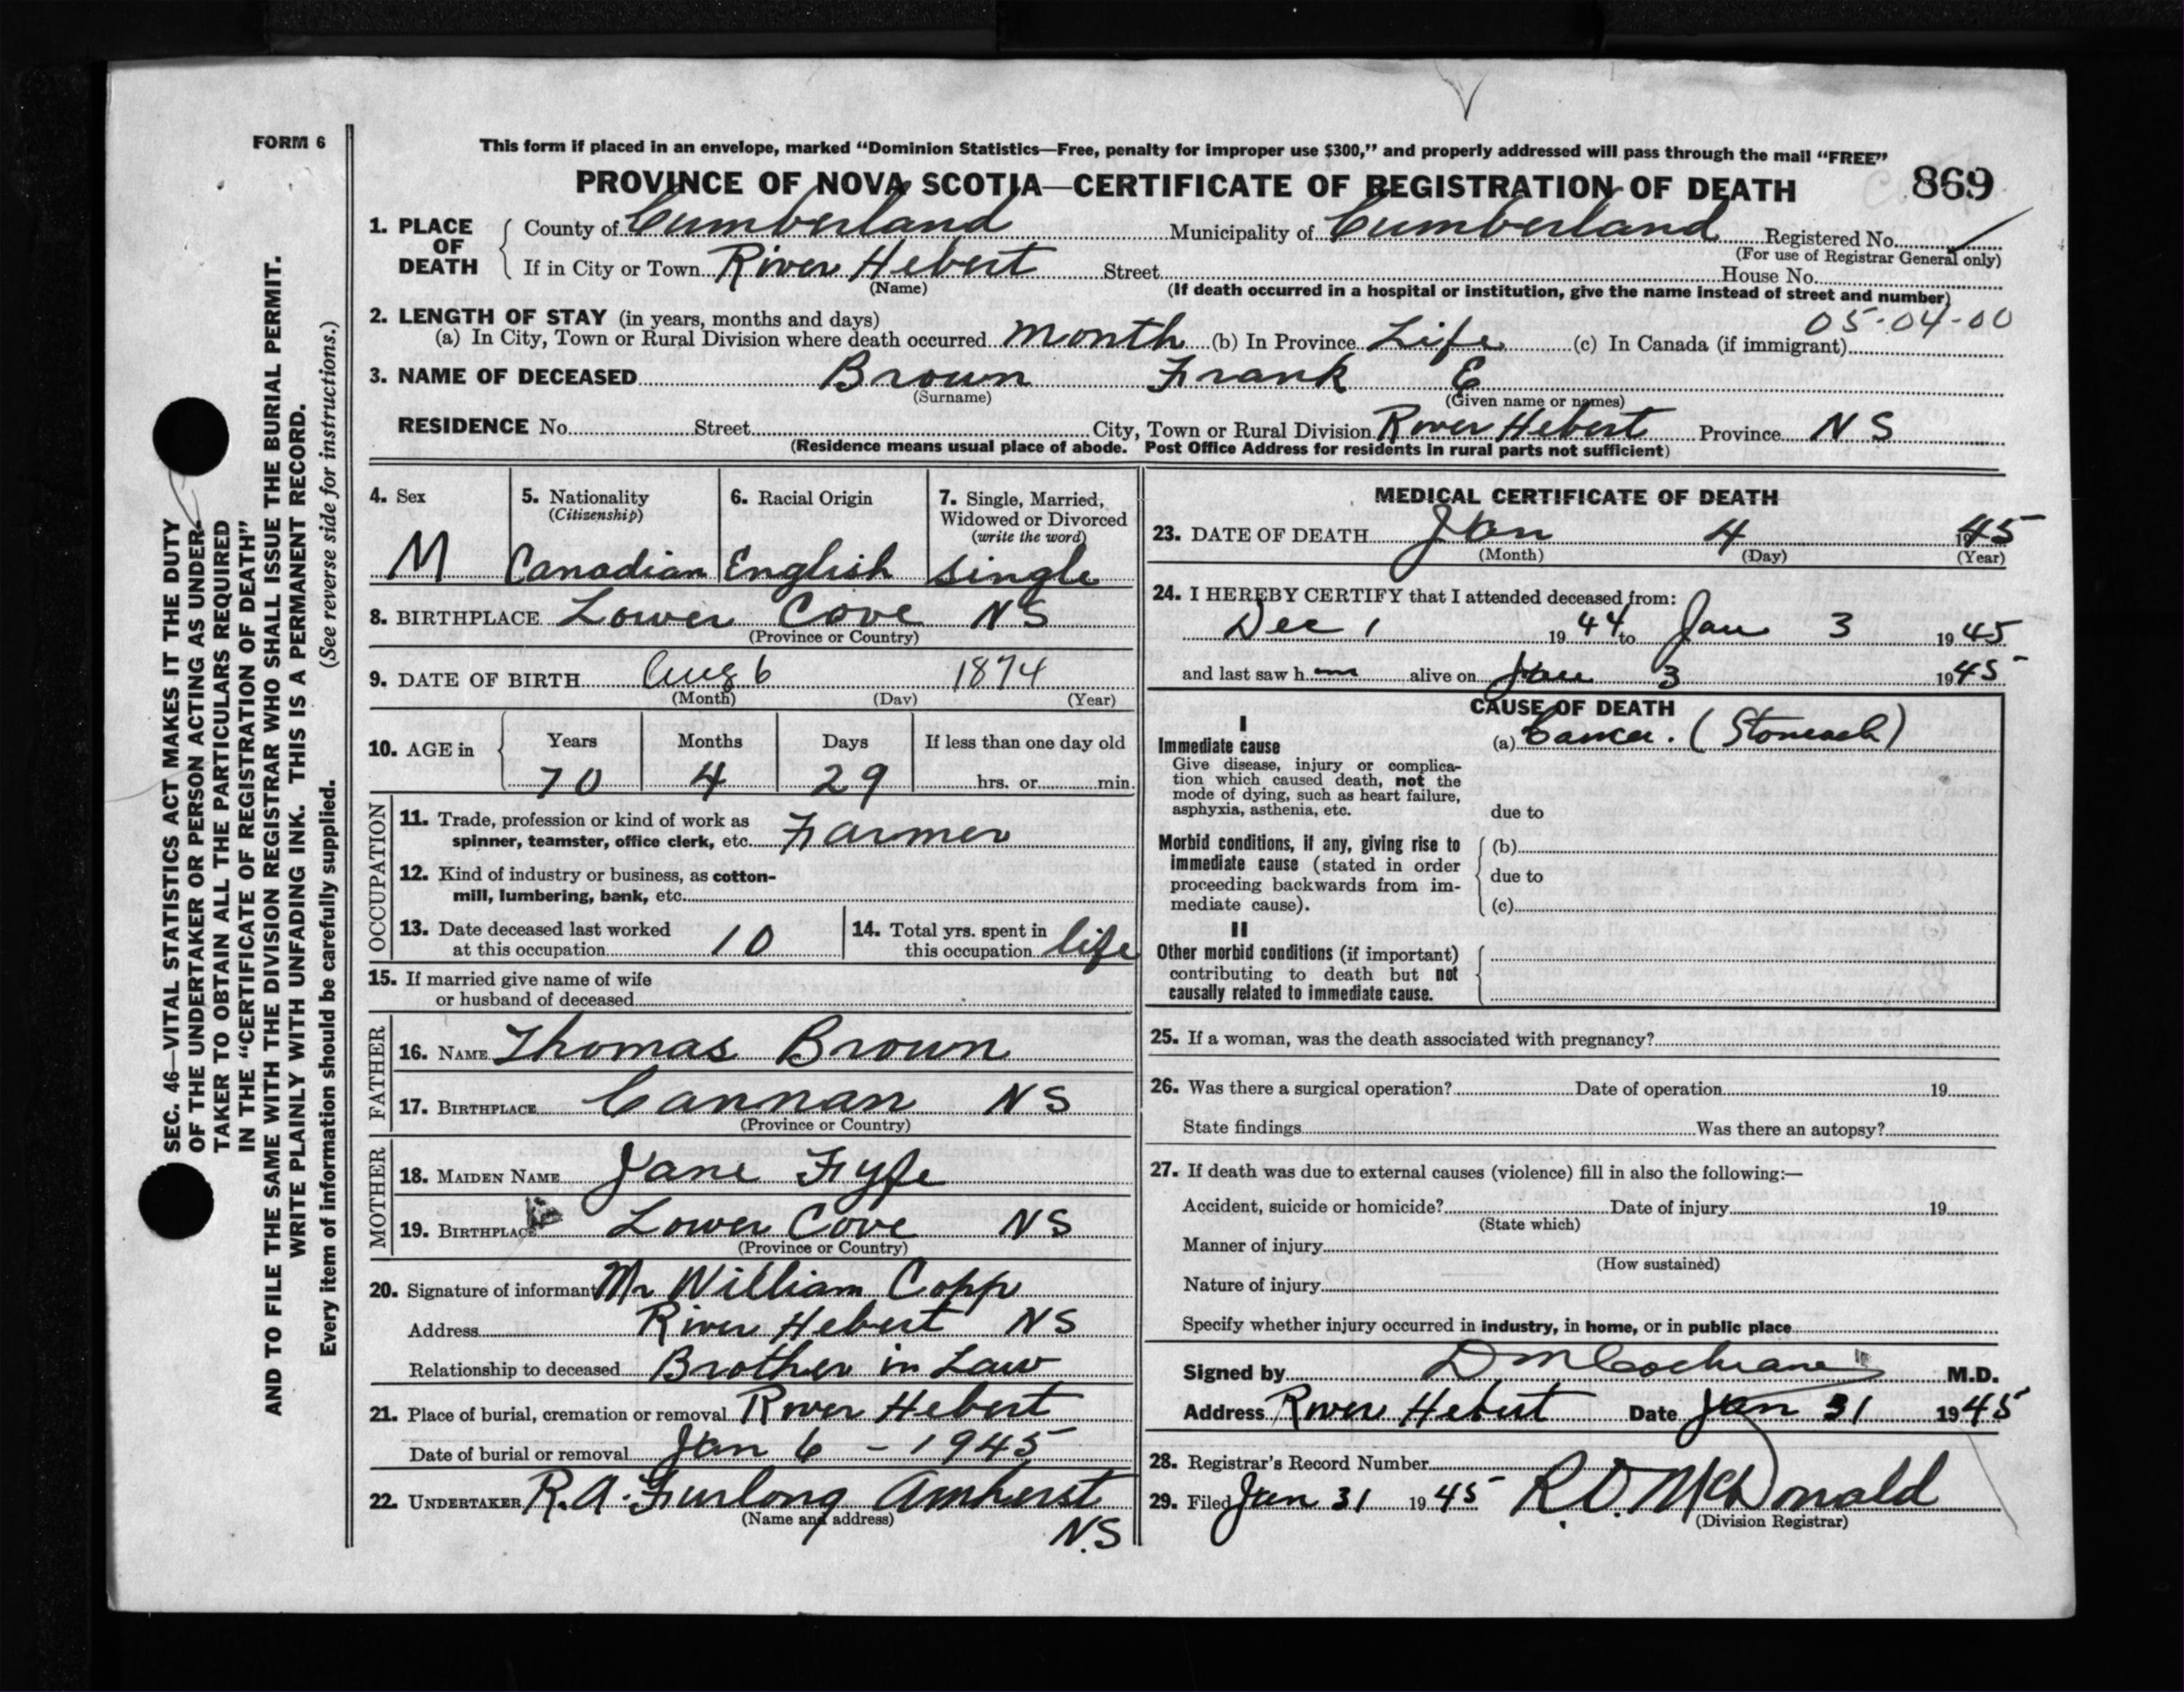 FORM 6
This form if placed in an envelope, marked "Dominion Statistics—Free, penalty for improper use $300," and properly addressed will pass through the mail "FREE"
PROVINCE OF NOVA SCOTIA—CERTIFICATE OF REGISTRATION OF DEATH 869
1. PLACE OF DEATH County of Cumberland Municipality of Cumberland Registered No.
(For use of Registrar General only)
If in City or Town River Hebert Street House No.
(Name) (If death occurred in a hospital or institution, give the name instead of street and number)
2. LENGTH OF STAY (in years, months and days) 05-04-00
(a) In City, Town or Rural Division where death occurred month (b) In Province Life (c) In Canada (if immigrant)
3. NAME OF DECEASED Brown Frank E
(Surname) (Given name or names)
RESIDENCE No. Street City, Town or Rural Division River Hebert Province N S
(Residence means usual place of abode. Post Office Address for residents in rural parts not sufficient)
4. Sex 5. Nationality (Citizenship) 6. Racial Origin 7. Single, Married, Widowed or Divorced (write the word)
M Canadian English single
8. BIRTHPLACE Lower Cove NS
(Province or Country)
9. DATE OF BIRTH Aug 6 1874
(Month) (Day) (Year)
10. AGE in Years Months Days If less than one day old
70 4 29 hrs. or min.
OCCUPATION
11. Trade, profession or kind of work as
spinner, teamster, office clerk, etc. Farmer
12. Kind of industry or business, as cotton-
mill, lumbering, bank, etc.
13. Date deceased last worked
at this occupation 10
14. Total yrs. spent in
this occupation life
15. If married give name of wife
or husband of deceased
FATHER
16. NAME Thomas Brown
17. BIRTHPLACE Cannan NS
(Province or Country)
MOTHER
18. MAIDEN NAME Jane Fyfe
19. BIRTHPLACE Lower Cove NS
(Province or Country)
20. Signature of informant Mr William Copp
Address River Hebert NS
Relationship to deceased Brother in Law
21. Place of burial, cremation or removal River Hebert
Date of burial or removal Jan 6 - 1945
22. UNDERTAKER R.A. Furlong Amherst
(Name and address)
N.S
MEDICAL CERTIFICATE OF DEATH
23. DATE OF DEATH Jan 4 1945
(Month) (Day) (Year)
24. I HEREBY CERTIFY that I attended deceased from:
Dec 1 1944 to Jan 3 1945
and last saw h im alive on Jan 3 1945
CAUSE OF DEATH
I
Immediate cause (a) Cancer. (Stomach)
Give disease, injury or complica-
tion which caused death, not the
mode of dying, such as heart failure,
asphyxia, asthenia, etc. due to
Morbid conditions, if any, giving rise to (b)
immediate cause (stated in order
proceeding backwards from im- due to
mediate cause). (c)
II
Other morbid conditions (if important)
contributing to death but not
causally related to immediate cause.
25. If a woman, was the death associated with pregnancy?
26. Was there a surgical operation? Date of operation 19
State findings Was there an autopsy?
27. If death was due to external causes (violence) fill in also the following:—
Accident, suicide or homicide? Date of injury 19
(State which)
Manner of injury
(How sustained)
Nature of injury
Specify whether injury occurred in industry, in home, or in public place
Signed by D M Cochrane M.D.
Address River Hebert Date Jan 31 1945
28. Registrar's Record Number
29. Filed Jan 31 1945 R.D. McDonald
(Division Registrar)
SEC. 46—VITAL STATISTICS ACT MAKES IT THE DUTY
OF THE UNDERTAKER OR PERSON ACTING AS UNDER-
TAKER TO OBTAIN ALL THE PARTICULARS REQUIRED
IN THE "CERTIFICATE OF REGISTRATION OF DEATH"
AND TO FILE THE SAME WITH THE DIVISION REGISTRAR WHO SHALL ISSUE THE BURIAL PERMIT.
WRITE PLAINLY WITH UNFADING INK. THIS IS A PERMANENT RECORD.
Every item of information should be carefully supplied. (See reverse side for instructions.)